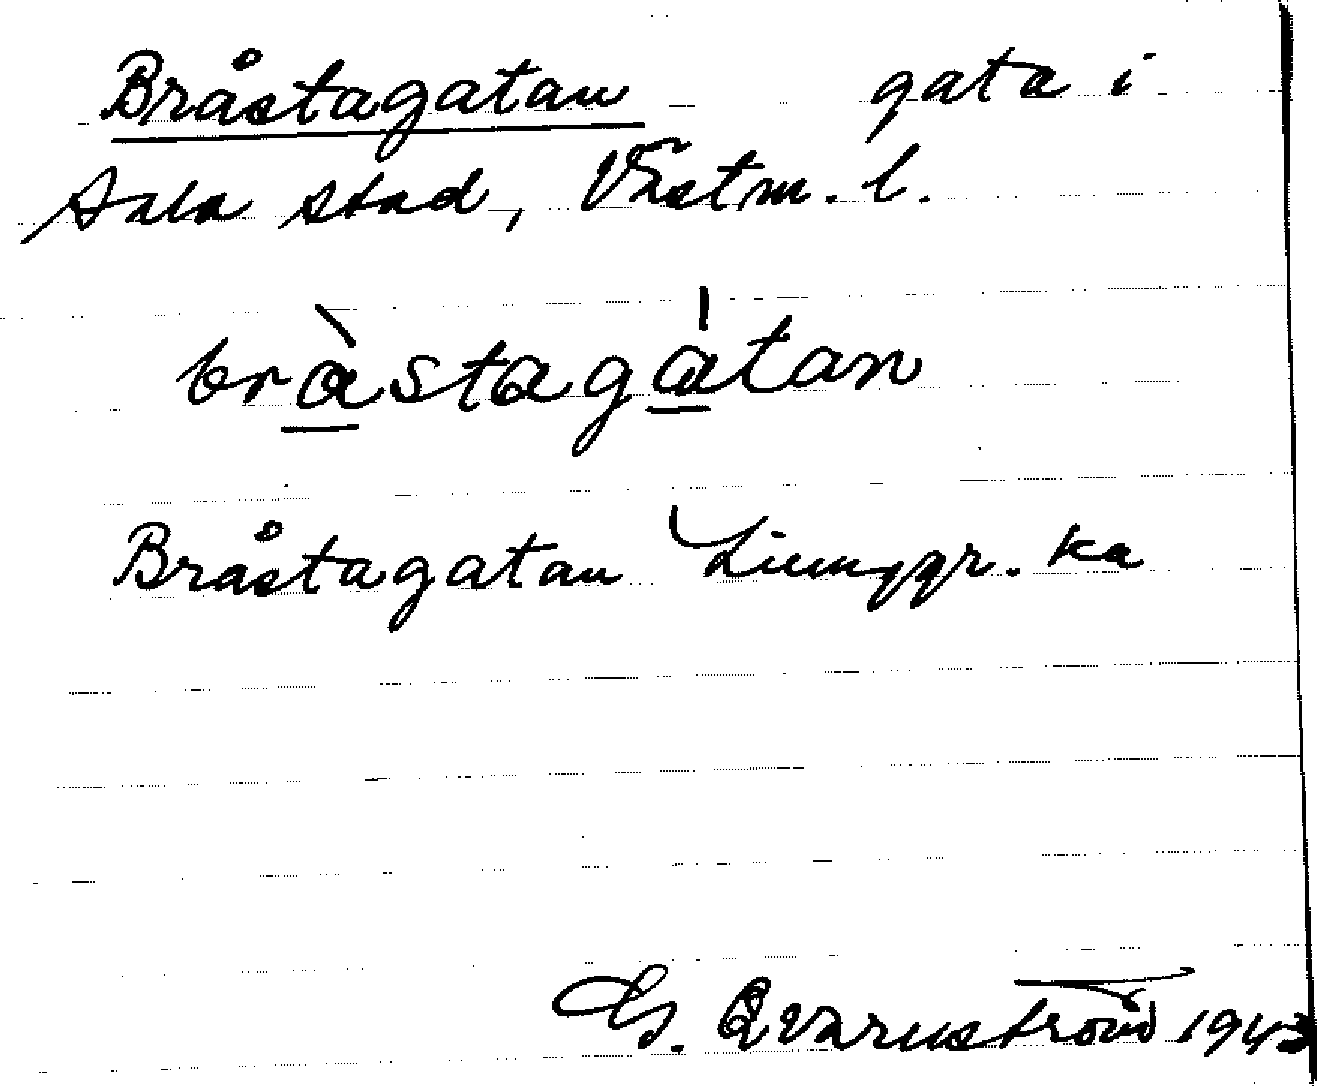 Bråstagatan gata i
Sala stad, Västm. l.
bràstagátan
Bråstagatan Ljunggr. ka
G. Qvarnström 1943